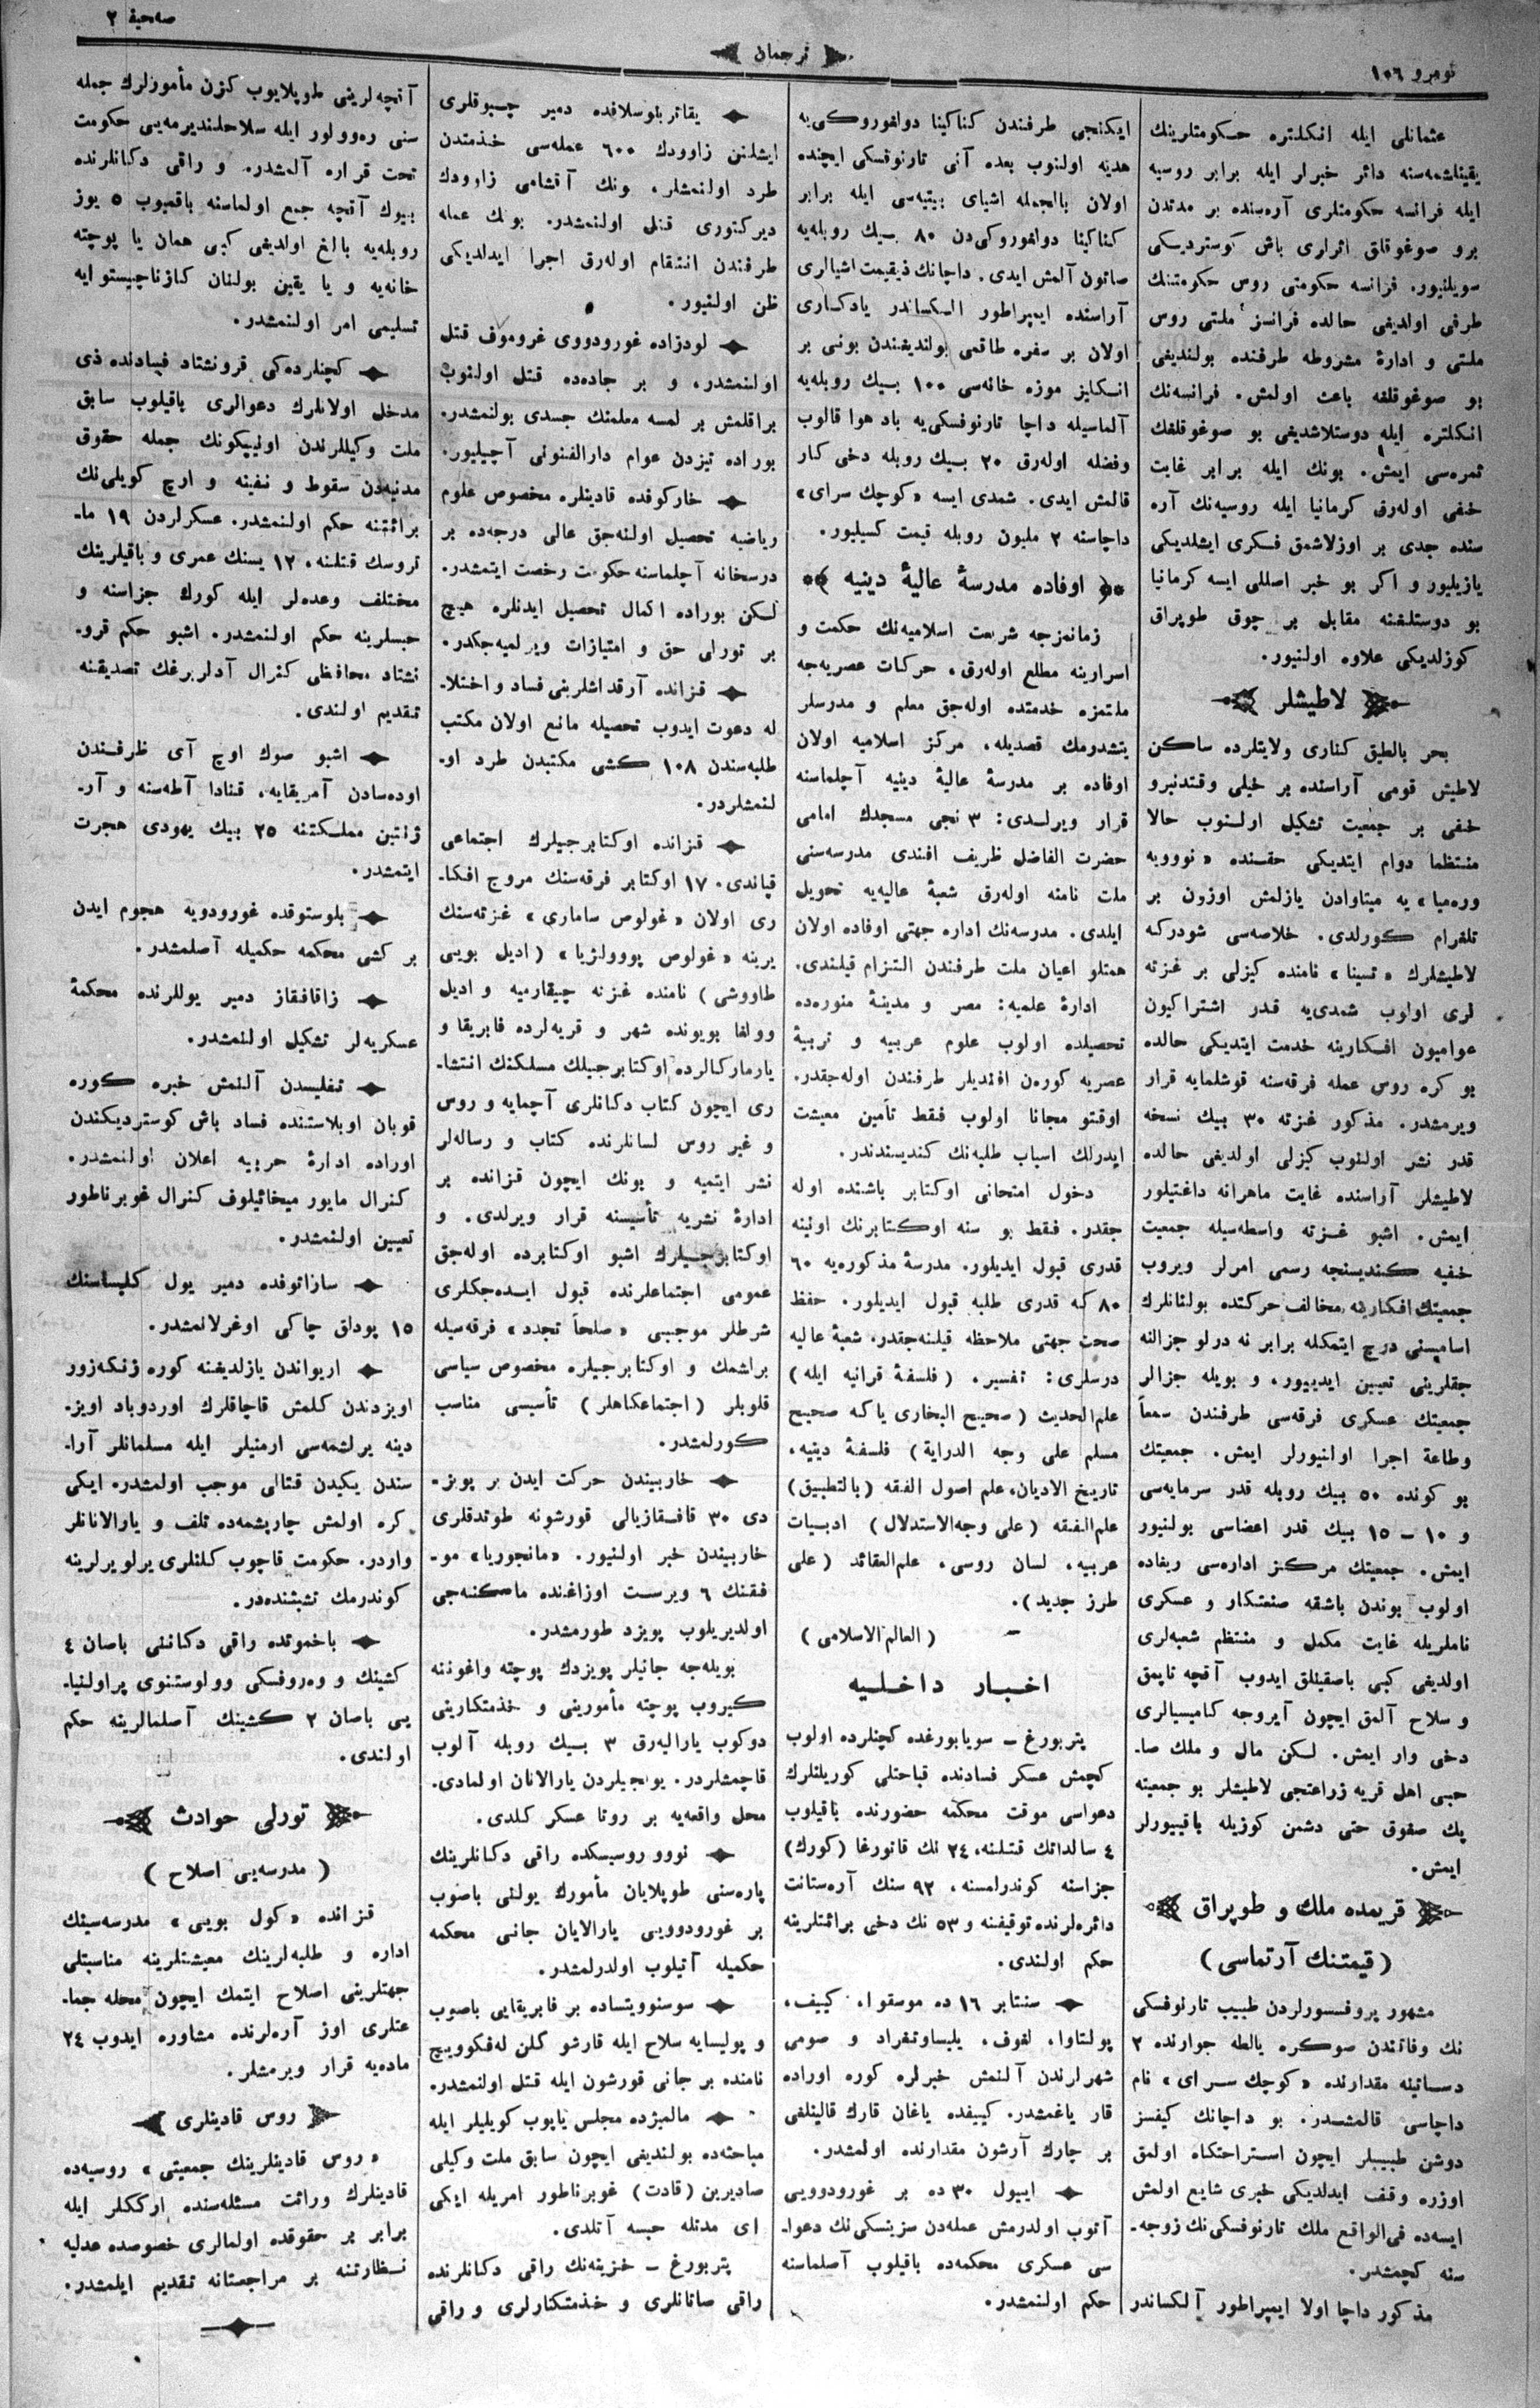 نومرو ١٠٦
ترجمان
صحیفه ٢
عثمانلی ایله انکلتره حکومتلرینك
یقینلشمه‌سنه دائر خبرلر ایله برابر روسیه
ایله فرانسه حکومتلری آره‌سنده بر مدتدن
برو صوغوقلق اثرلری باش کوستردیکی
سویلنیور. فرانسه حکومتی روس حکومتننك
طرفی اولدیغی حالده فرانسز ملتی روس
ملتی و ادارهٔ مشروطه طرفنده بولندیغی
بو صوغوقلغه باعث اولمش. فرانسه‌نك
انکلتره ایله دوستلاشدیغی بو صوغوقلقك
ثمره‌سی ایمش. بونك ایله برابر غایت
خفی اوله‌رق کرمانیا ایله روسیه‌نك آره
سنده جدی بر اوزلاشمق فکری ایشلدیکی
یازیلیور و اکر بو خبر اصللی ایسه کرمانیا
بو دوستلغنه مقابل بر چوق طوپراق
کوزلدیکی علاوه اولنیور.
لاطیشلر
بحر بالطیق کناری ولایتلرده ساکن
لاطیش قومی آراسنده بر خیلی وقتدنبرو
خفی بر جمعیت تشکیل اولنوب حالا
منتظما دوام ایتدیکی حقنده «نوویه
وره‌میا» یه میتاوادن یازلمش اوزون بر
تلغرام کورلدی. خلاصه‌سی شودرکه
لاطیشلرك «تسینا» نامنده کیزلی بر غزته
لری اولوب شمدی‌یه قدر اشتراکیون
عوامیون افکارینه خدمت ایتدیکی حالده
بو کره روس عمله فرقه‌سنه قوشلمایه قرار
ویرمشدر. مذکور غزته ٣٠ بیك نسخه
قدر نشر اولنوب کیزلی اولدیغی حالده
لاطیشلر آراسنده غایت ماهرانه داغتیلور
ایمش. اشبو غزته واسطه‌سیله جمعیت
خفیه کندیسنجه رسمی امرلر ویروب
جمعیتك افکارینه مخالف حرکتده بولنانلرك
اسامیسنی درج ایتمکله برابر نه درلو جزالنه
جقلرینی تعیین ایدییور، و بویله جزالر
جمعیتك عسکری فرقه‌سی طرفندن سمعاً
وطاعة اجرا اولنیورلر ایمش. جمعیتك
بو کونده ٥٠ بیك روبله قدر سرمایه‌سی
و ١٠ – ١٥ بیك قدر اعضاسی بولنیور
ایمش. جمعیتك مرکز اداره‌سی ریغاده
اولوب بوندن باشقه صنعتکار و عسکری
ناملریله غایت مکمل و منتظم شعبه‌لری
اولدیغی کبی باصقینلق ایدوب آقچه تاپمق
و سلاح آلمق ایچون آیروجه کامیسیالری
دخی وار ایمش. لکن مال و ملك صا-
حبی اهل قریه زراعتجی لاطیشلر بو جمعیته
پك صغوق حتی دشمن کوزیله باقییورلر
ایمش.
قریمده ملك و طوپراق
(قیمتنك آرتماسی)
مشهور پروفسورلردن طبیب تارنوفسکی
نك وفاتندن صوکره یالطه جوارنده ٢
دساتینه مقدارنده «کوچك سرای» نام
داچاسی قالمشدر. بو داچانك کیفسز
دوشن طبیبلر ایچون استراحتکاه اولمق
اوزره وقف ایدلدیکی خبری شایع اولمش
ایسه‌ده فی‌الواقع ملك تارنوفسکی‌نك زوجه-
سنه کچمشدر.
مذکور داچا اولا ایمپراطور آلکساندر
ایکنجی طرفندن کناکینا دولغوروکی‌یه
هدیه اولنوب بعده آنی تارنوفسکی ایچنده
اولان بالجمله اشیای بیتیه‌سی ایله برابر
کناکینا دولغوروکی‌دن ٨٠ بیك روبله‌یه
صاتون آلمش ایدی. داچانك ذیقیمت اشیالری
آراسنده ایمپراطور آلکساندر یادکاری
اولان بر سفره طاقمی بولندیغندن بونی بر
انکلیز موزه خانه‌سی ١٠٠ بیك روبله‌یه
آلماسیله داچا تارنوفسکی‌یه باد هوا قالوب
وفضله اوله‌رق ٢٠ بیك روبله دخی کار
قالمش ایدی. شمدی ایسه «کوچك سرای»
داچاسنه ٢ ملیون روبله قیمت کسیلیور.
اوفاده مدرسهٔ عالیهٔ دینیه
زمانمزجه شریعت اسلامیه‌نك حکمت و
اسرارینه مطلع اوله‌رق، حرکات عصریه‌جه
ملتمزه خدمتده اوله‌جق معلم و مدرسلر
یتشدومك قصدیله، مرکز اسلامیه اولان
اوفاده بر مدرسهٔ عالیهٔ دینیه آچلماسنه
قرار ویرلدی: ٣ نجی مسجدك امامی
حضرت الفاضل ظریف افندی مدرسه‌سنی
ملت نامنه اوله‌رق شعبهٔ عالیه‌یه تحویل
ایلدی. مدرسه‌نك اداره جهتی اوفاده اولان
همتلو اعیان ملت طرفندن التزام قیلندی.
ادارهٔ علمیه: مصر و مدینهٔ منوره‌ده
تحصیلده اولوب علوم عربیه و تربیهٔ
عصریه کوره‌ن افندیلر طرفندن اوله‌جقدر.
اوقتو مجانا اولوب فقط تأمین معیشت
ایدرلك اسباب طلبه‌نك کندیسندندر.
دخول امتحانی اوکتابر باشنده اوله
جقدر. فقط بو سنه اوکتابرنك اونینه
قدری قبول ایدیلور. مدرسهٔ مذکوره‌یه ٦٠
٨٠ که قدری طلبه قبول ایدیلور. حفظ
صحت جهتی ملاحظه قیلنه‌جقدر. شعبهٔ عالیه
درسلری: تفسیر، (فلسفهٔ قرانیه ایله)
علم‌الحدیث (صحیح البخاری یا که صحیح
مسلم علی وجه الدرایة) فلسفهٔ دینیه،
تاریخ الادیان، علم اصول الفقه (بالتطبیق)
علم‌الفقه (علی وجه‌الاستدلال) ادبیات
عربیه، لسان روسی، علم‌العقائد (علی
طرز جدید).
– (العالم الاسلامی)
اخبار داخلیه
پتربورغ – سویابورغده کچنلرده اولوب
کچمش عسکر فسادنده قباحتلی کوریلنلرك
دعواسی موقت محکمه حضورنده باقیلوب
٤ سالداتك قتلنه، ٢٤ نك قاتورغا (کورك)
جزاسنه کوندرلمسنه، ٩٢ سنك آره‌ستانت
دائره‌لرنده توقیفنه و ٥٣ نك دخی برائتلرینه
حکم اولندی.
سنتابر ١٦ ده موسقوا، کییف،
پولتاوا، لغوف، یلیساوتغراد و صومی
شهرلرندن آلنمش خبرلره کوره اوراده
قار یاغمشدر. کییفده یاغان قارك قالینلغی
بر چارك آرشون مقدارنده اولمشدر.
اییول ٣٠ ده بر غورودوویی
آتوب اولدرمش عمله‌دن سزینسکی‌نك دعوا-
سی عسکری محکمه‌ده باقیلوب آصلماسنه
حکم اولنمشدر.
یقاتربلوسلافده دمیر چبوقلری
ایشلنن زاوودك ٦٠٠ عمله‌سی خذمتدن
طرد اولنمشلر. ونك آقشامی زاوودك
دیرکتوری قتل اولنمشدر. بونك عمله
طرفندن انتقام اوله‌رق اجرا ایدلدیکی
ظن اولنیور.
لودزاده غورودووی غروموف قتل
اولنمشدر، و بر جاده‌ده قتل اولنوب
براقلمش بر لمسه معلمنك جسدی بولنمشدر.
بوراده تیزدن عوام دارالفنونی آچیلیور.
خارکوفده قادینلره مخصوص علوم
ریاضیه تحصیل اولنه‌جق عالی درجه‌ده بر
درسخانه آچلماسنه حکومت رخصت ایتمشدر.
لکن بوراده اکمال تحصیل ایدنلره هیچ
بر تورلی حق و امتیازات ویرلمیه‌جکدر.
قزانده آرقداشلرینی فساد و اختلا-
له دعوت ایدوب تحصیله مانع اولان مکتب
طلبه‌سندن ١٠٨ کشی مکتبدن طرد او-
لنمشلردر.
قزانده اوکتابرجیلرك اجتماعی
قپاندی. ١٧ اوکتابر فرقه‌سنك مروج افکا-
ری اولان «غولوص ساماری» غزته‌سنك
یرینه «غولوص پوولژیا» (ادیل بویی
طاووشی) نامنده غزته چیقارمیه و ادیل
وولغا بویونده شهر و قریه‌لرده فابریقا و
یارمارکالرده اوکتابرجیلك مسلکنك انتشا-
ری ایچون کتاب دکانلری آچمایه و روس
و غیر روس لسانلرنده کتاب و رساله‌لر
نشر ایتمیه و بونك ایچون قزانده بر
ادارهٔ نشریه تأسیسنه قرار ویرلدی. و
اوکتابرجیلرك اشبو اوکتابرده اوله‌جق
عمومی اجتماعلرنده قبول ایده‌جکلری
شرطلر موجبی «صلحاً تجدد» فرقه‌سیله
براشمك و اوکتابرجیلره مخصوص سیاسی
قلوبلر (اجتماعکاهلر) تأسیسی مناسب
کورلمشدر.
خاربیندن حرکت ایدن بر پویز-
دی ٣٠ قافقازیالی قورشونه طوتدقلری
خاربیندن خبر اولنیور. «مانجوریا» مو-
قفنك ٦ ویرست اوزاغنده ماکنه‌جی
اولدیریلوب پویزد طورمشدر.
بویله‌جه جانیلر پویزدك پوچته واغوننه
کیروب پوچته مأمورینی و خذمتکارینی
دوکوب یارالیه‌رق ٣ بیك روبله آلوب
قاچمشلردر. یولجیلردن یارالانان اولمادی.
محل واقعه‌یه بر روتا عسکر کلدی.
نووو روسیسکده راقی دکانلرینك
پاره‌سنی طوپلایان مأمورك یولنی باصوب
بر غورودوویی یارالایان جانی محکمه
حکمیله آتیلوب اولدرلمشدر.
سوسنوویتساده بر فابریقایی باصوب
و پولیسایه سلاح ایله قارشو کلن له‌فکوویچ
نامنده بر جانی قورشون ایله قتل اولنمشدر.
مالمیژده مجلس یاپوب کویلیلر ایله
مباحثه‌ده بولندیغی ایچون سابق ملت وکیلی
صادیرین (قادت) غوبرناطور امریله ایکی
ای مدتله حبسه آتلدی.
پتربورغ – خزینه‌نك راقی دکانلرنده
راقی صاتانلری و خذمتکارلری و راقی
آقچه‌لرینی طوپلایوب کزن مأمورلرك جمله
سنی ره‌وولور ایله سلاحلندیرمه‌یی حکومت
تحت قراره آلمشدر. و راقی دکانلرنده
بیوك آقچه جمع اولماسنه باقمیوب ٥ یوز
روبله‌یه بالغ اولدیغی کبی همان یا پوچته
خانه‌یه و یا یقین بولنان کازناچیستوایه
تسلیمی امر اولنمشدر.
کچنلرده‌کی قرونشتاد فسادنده ذی
مدخل اولانلرك دعوالری باقیلوب سابق
ملت وکیللرندن اونیپکونك جمله حقوق
مدنیه‌دن سقوط و نفینه و اوچ کویلی‌نك
برائتنه حکم اولنمشدر. عسکرلردن ١٩ ما-
تروسك قتلنه، ١٢ یسنك عمری و باقیلرینك
مختلف وعده‌لر ایله کورك جزاسنه و
حبسلرینه حکم اولنمشدر. اشبو حکم قرو-
نشتاد محافظی کنرال آدلربرغك تصدیقنه
تقدیم اولندی.
اشبو صوك اوچ آی ظرفندن
اوده‌سادن آمریقایه، قنادا آطه‌سنه و آر-
ژنتین مملکتنه ٢٥ بیك یهودی هجرت
ایتمشدر.
بلوستوقده غورودویه هجوم ایدن
بر کشی محکمه حکمیله آصلمشدر.
زاقافقاز دمیر یوللرنده محکمهٔ
عسکریه‌لر تشکیل اولنمشدر.
تفلیسدن آلنمش خبره کوره
قوبان اوبلاستنده فساد باش کوستردیکندن
اوراده ادارهٔ حربیه اعلان اولنمشدر.
کنرال مایور میخائیلوف کنرال غوبرناطور
تعیین اولنمشدر.
ساراتوفده دمیر یول کلیساسنك
١٥ پوداق چاکی اوغرلانمشدر.
اریواندن یازلدیغنه کوره زنکه‌زور
اویزدندن کلمش قاچاقلرك اوردوباد اویز-
دینه یرلشمه‌سی ارمنیلر ایله مسلمانلر آرا-
سندن یکیدن قتالی موجب اولمشدر. ایکی
کره اولمش چارپشمه‌ده تلف و یارالانانلر
واردر. حکومت قاچوب کلنلری یرلو یرلرینه
کوندرمك تشبثنده‌در.
باخموتده راقی دکاننی باصان ٤
کشینك و وه‌روفسکی وولوستنوی پراولنیا-
یی باصان ٢ کشینك آصلمالرینه حکم
اولندی.
تورلی حوادث
(مدرسه‌یی اصلاح)
قزانده «کول بویی» مدرسه‌سینك
اداره و طلبه‌لرینك معیشتلرینه مناسبتلی
جهتلرینی اصلاح ایتمك ایچون محله جما-
عتلری اوز آره‌لرنده مشاوره ایدوب ٢٤
ماده‌یه قرار ویرمشلر.
روس قادینلری
«روس قادینلرینك جمعیتی» روسیه‌ده
قادینلرك وراثت مسئله‌سنده ارککلر ایله
برابر بر حقوقده اولمالری خصوصده عدلیه
نظارتنه بر مراجعتنامه تقدیم ایلمشدر.